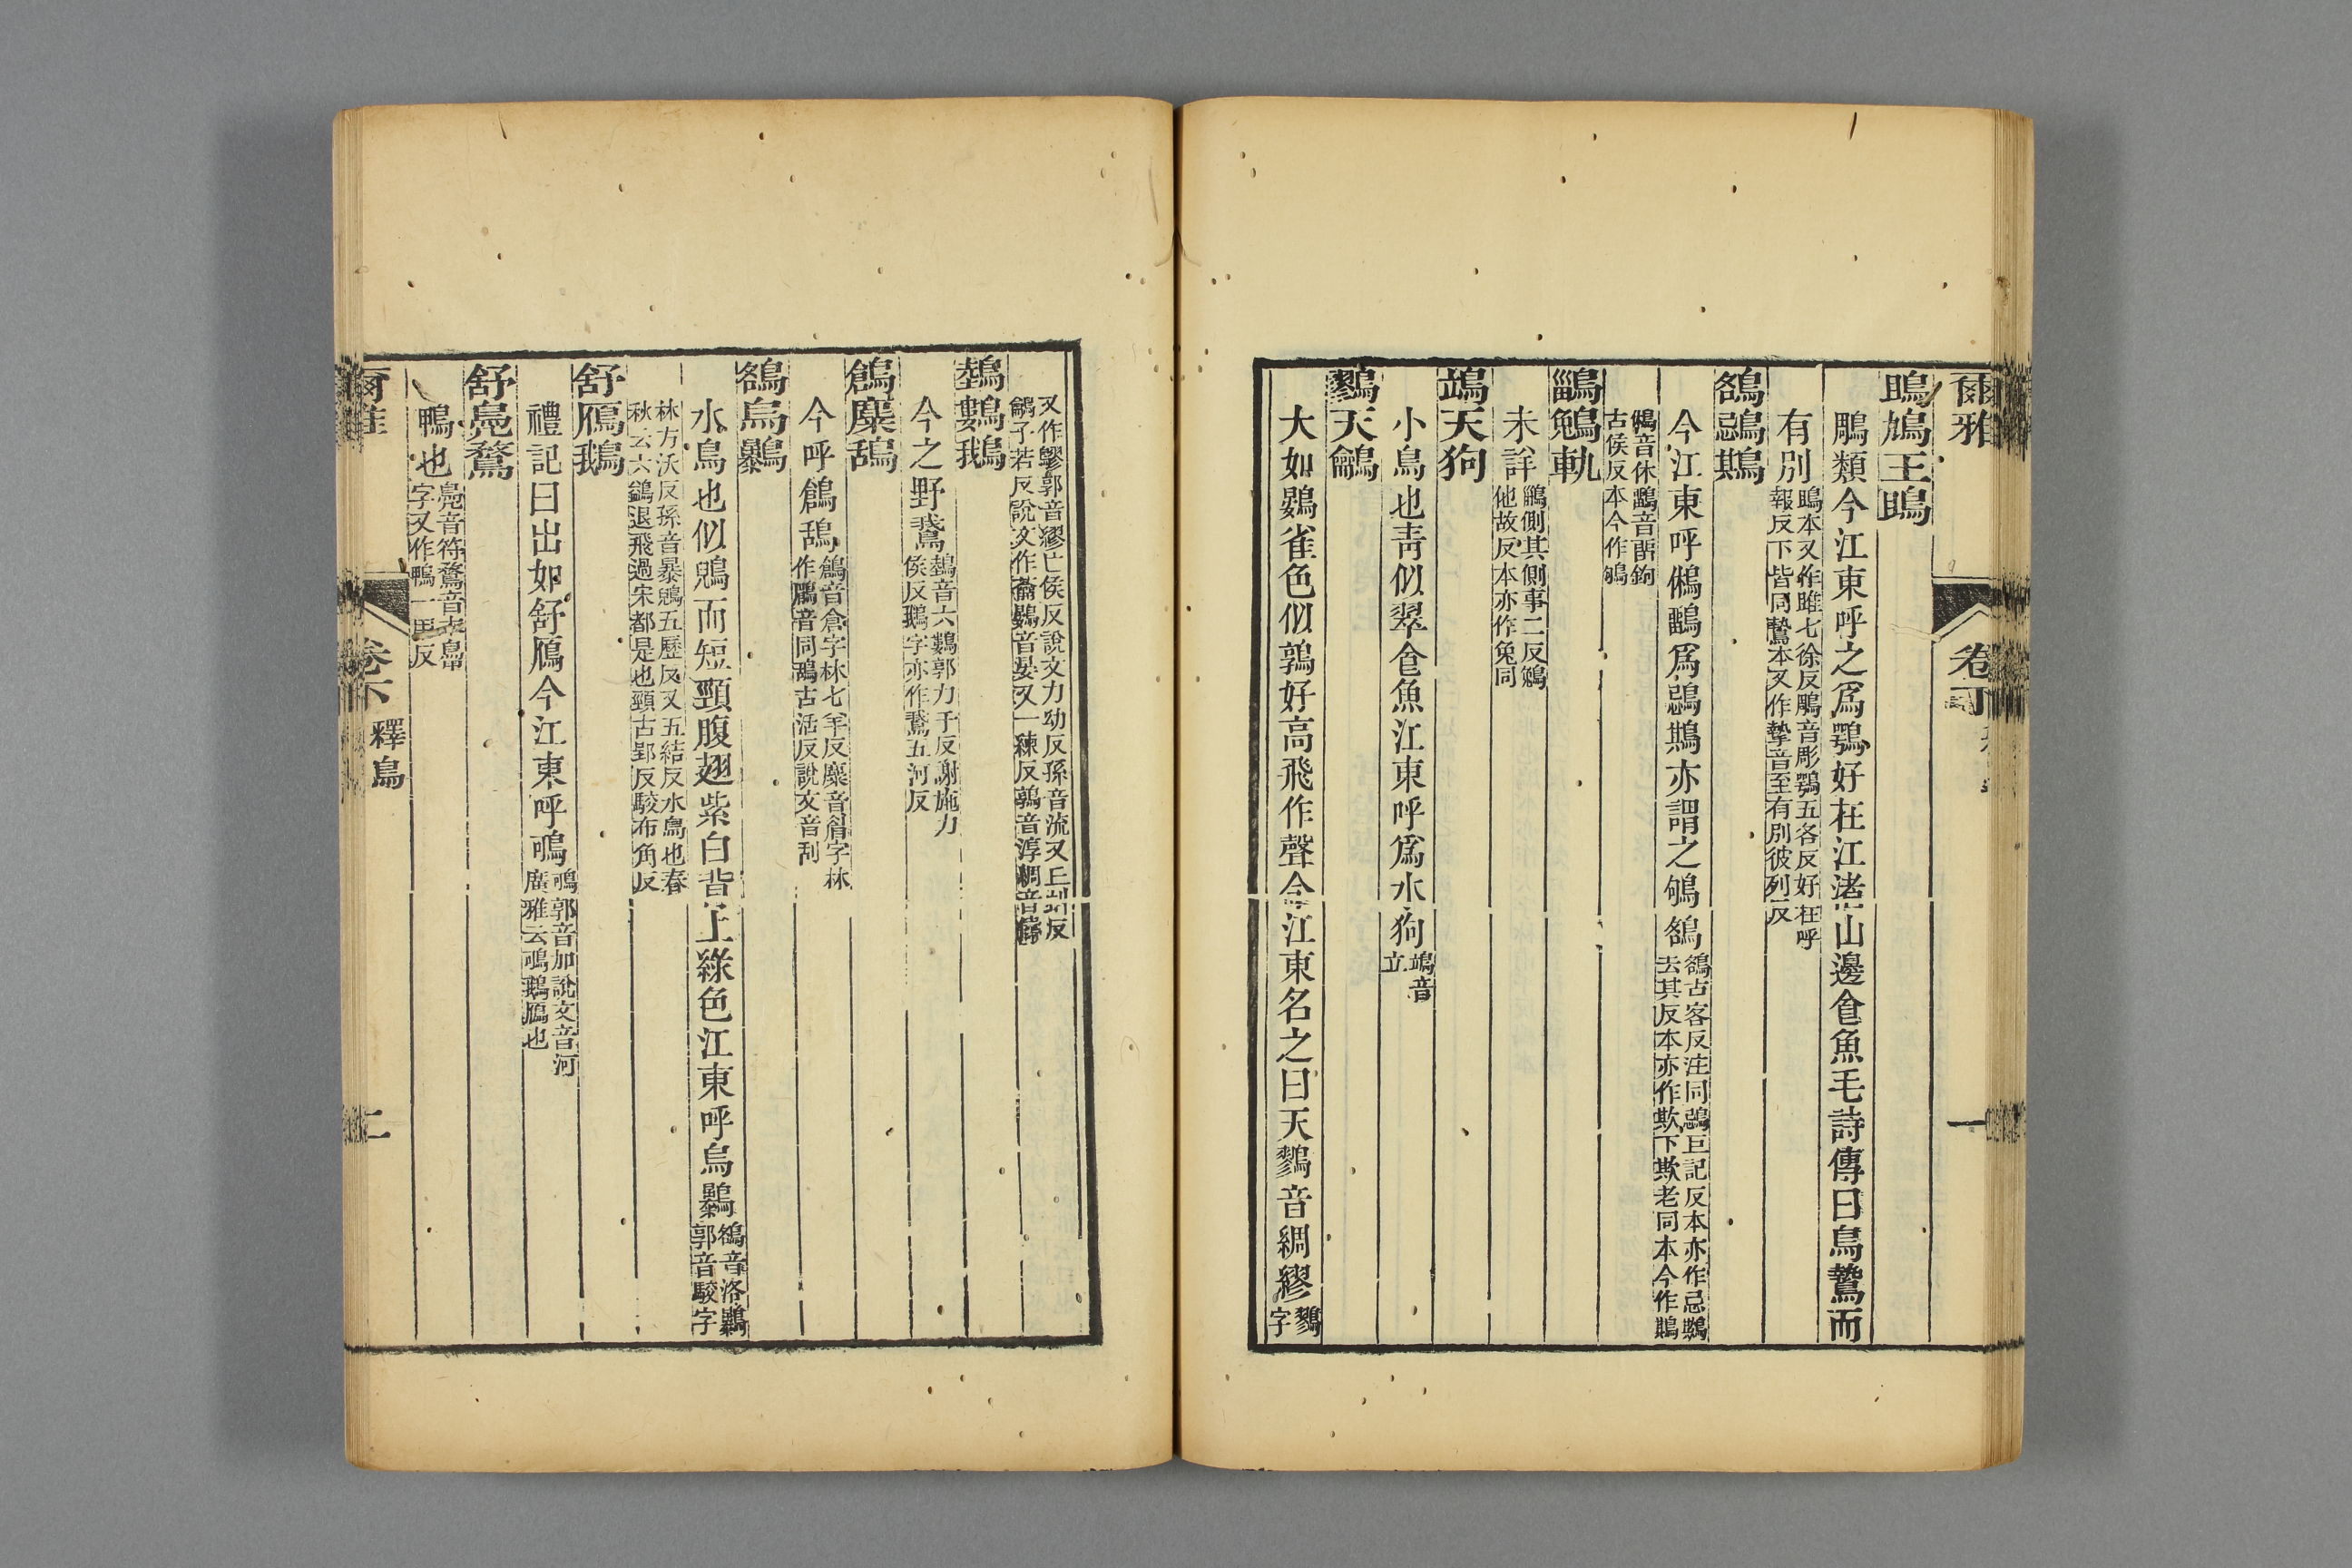 爾雅
卷下
一
鴡鳩王鴡
鵰類今江東呼之爲鶚好在江渚山邊食魚毛詩傳曰鳥鷙而
有別鴡本又作雎七徐反鵰音彫鶚五各反好在呼
報反下皆同鷙本又作摯音至有別彼列反
鵅鵋䳢
今江東呼鵂鶹爲鵋䳢亦謂之鴝鵅鵅古客反注同鵋巨記反本亦作忌䳢
去其反本亦作欺下欺老同本今作䳢
鵂音休鶹音留鉤
古侯反本今作鴝
鶅鵵軌
未詳鶅側其側事二反鵵
他故反本亦作兔同
鴗天狗
小鳥也青似翠食魚江東呼爲水狗鴗音
立
鷚天鸙
大如鷃雀色似鶉好高飛作聲今江東名之曰天鷚音綢繆鷚
字
又作䴏郭音繆亡侯反說文力幼反孫音流又丘虯反
鸙予若反說文作蘥鷃音晏又一諫反鶉音淳綢音儔
鵱鷜鵝
今之野鵞鵱音六鷜郭力于反謝施力
侯反鵝字亦作鵞五河反
鶬麋鴰
今呼鶬鴰鶬音倉字林七羊反麋音眉字林
作䴢音同鴰古活反說文音刮
鵅烏鸔
水鳥也似鶂而短頸腹翅紫白背上綠色江東呼烏鸔鵅音洛鸔
郭音駮字
林方沃反孫音暴鶂五歷反又五結反水鳥也春
秋云六鷁退飛過宋都是也頸古郢反駮布角反
舒鴈鵝
禮記曰出如舒鴈今江東呼鳴鳴郭音加說文音河
廣雅云鳴鵝鴈也
舒鳧鶩
鴨也鳧音符鶩音木鳥
字又作鴨一甲反
爾雅
卷下
釋鳥
二